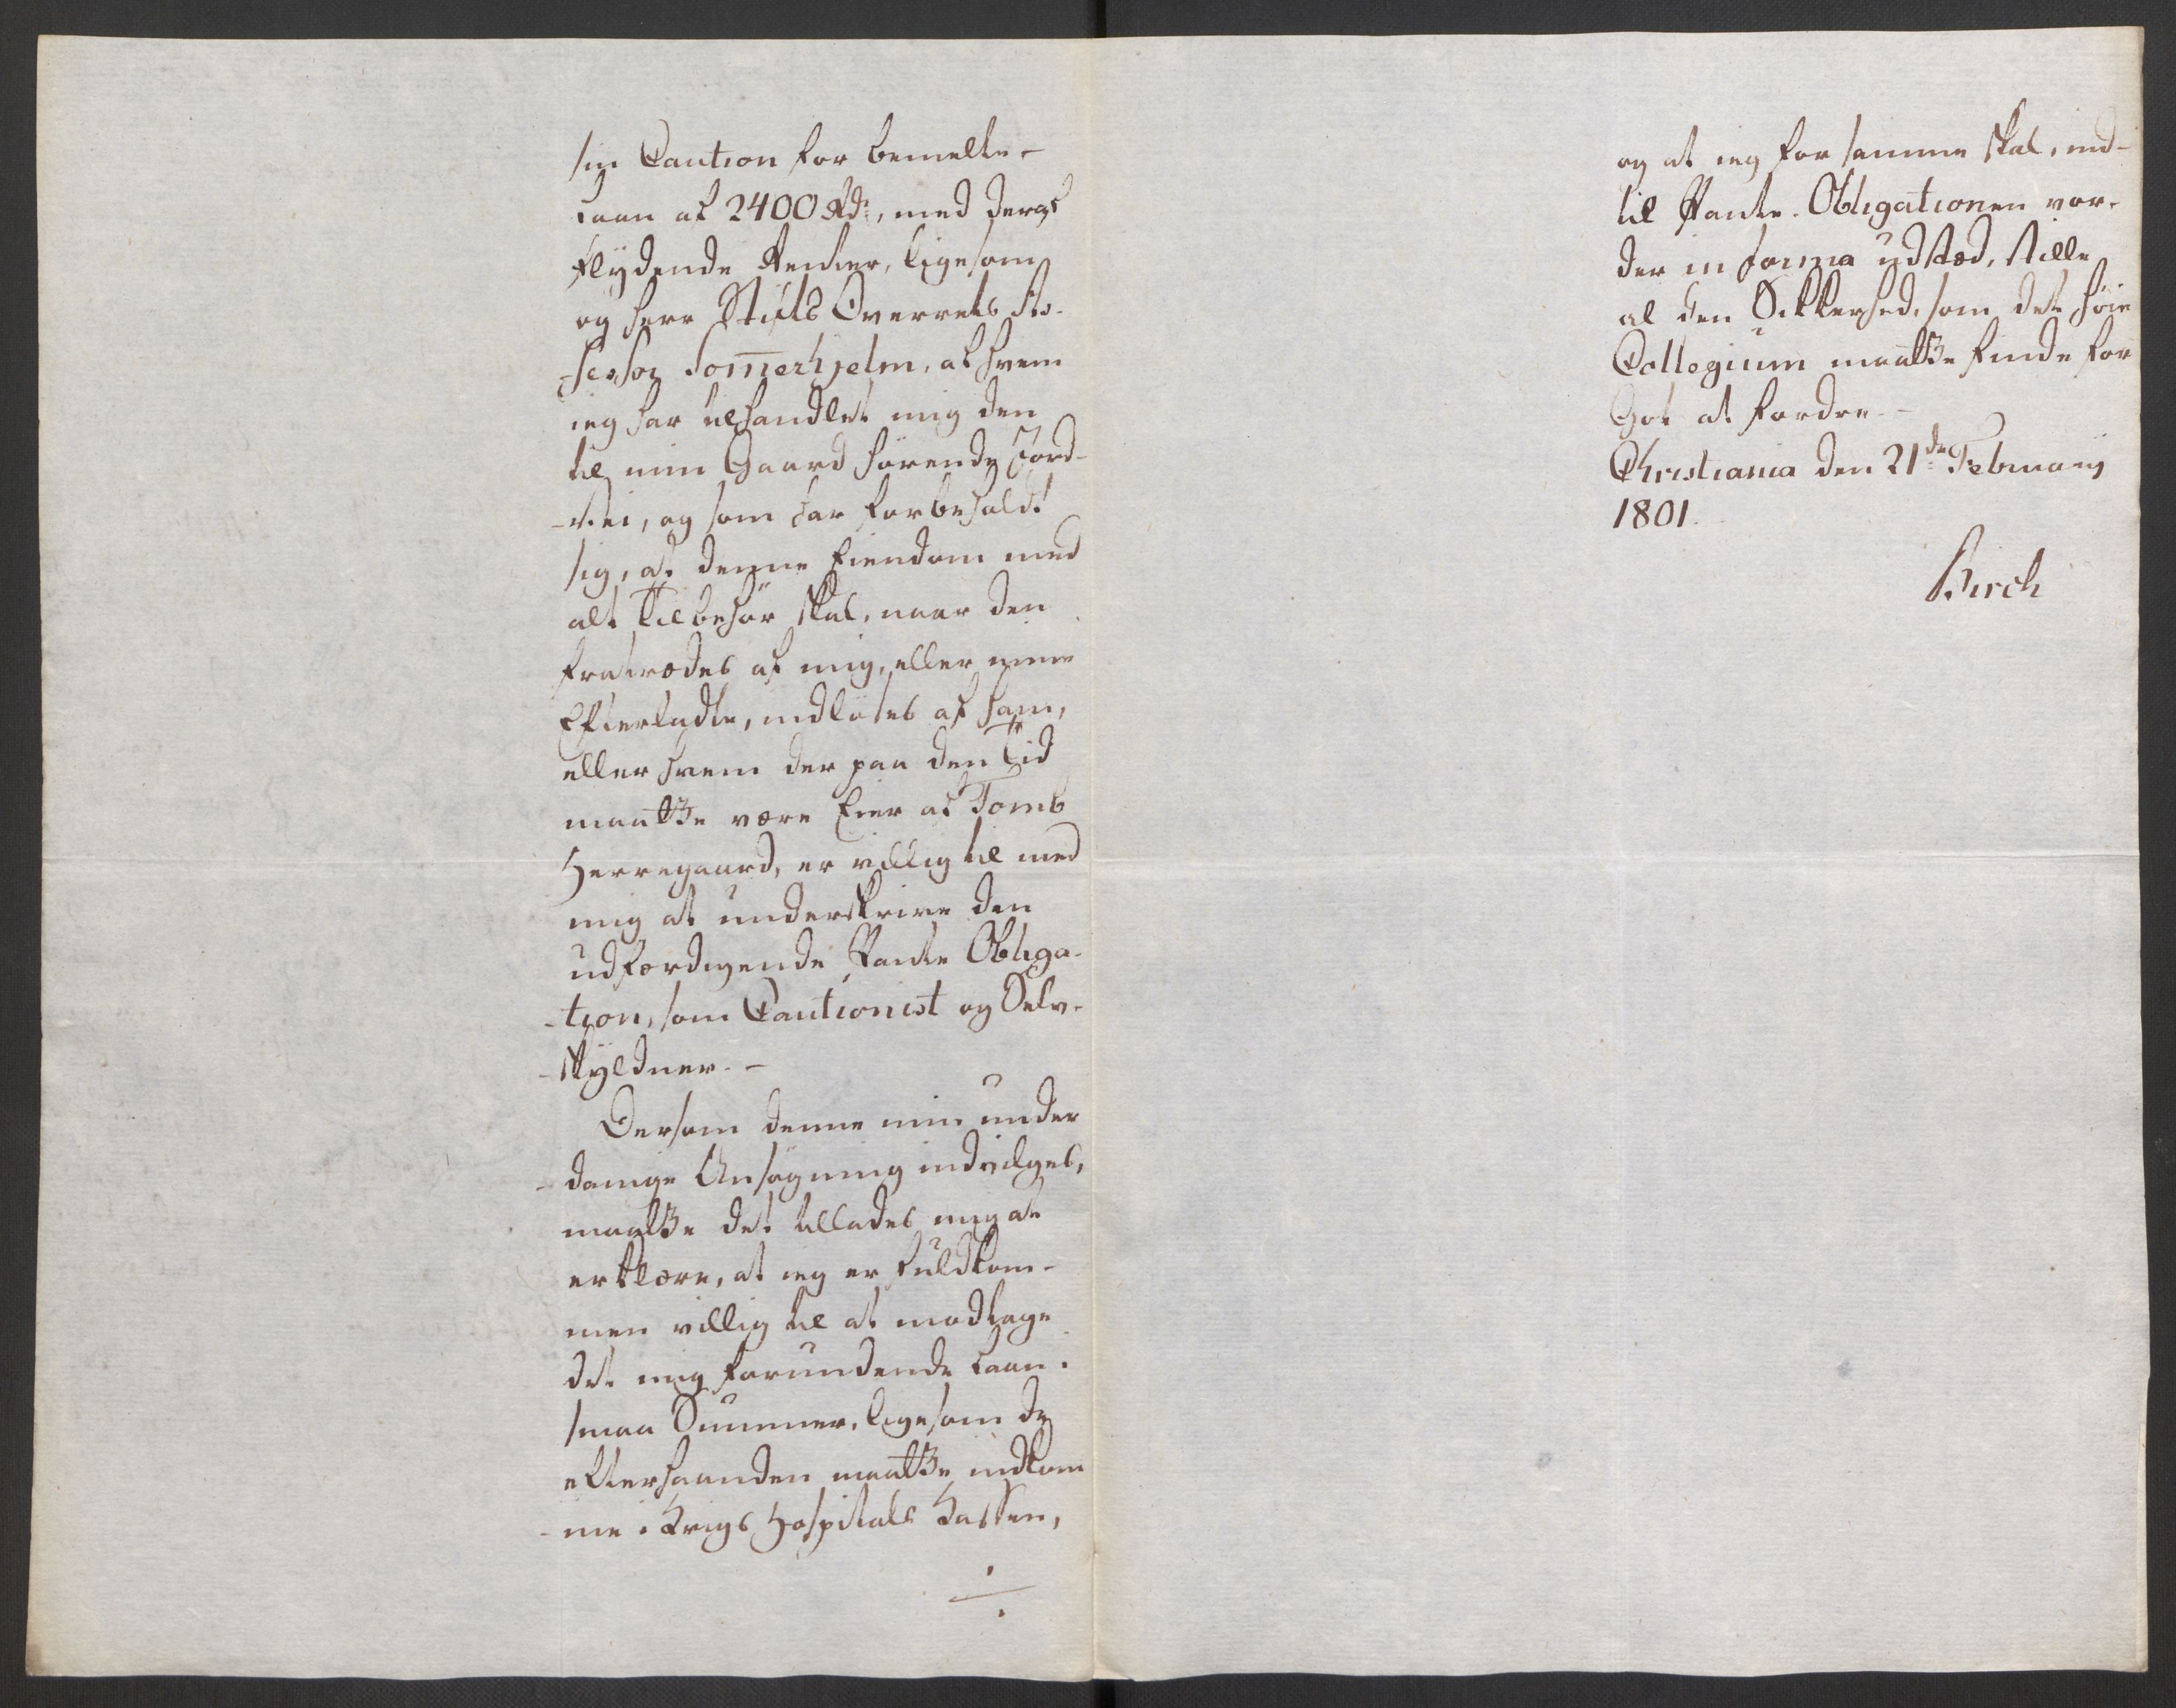 sin Caution for bemelte
Laan af 2400 Rd:, med deraf
flydende Renter, ligesom
og Herr Stifts Overrets As-
-sessor Som̄erhjelm, af hvem
ieg har tilhandlet mig den
til min Gaard hørende Jord-
-vei, og som har forbeholdt
sig, at denne Eiendom med
alt Tilbehør skal, naar den
fratrædes af mig, eller mine
Efterladte, indløses af ham,
eller hvem der paa den Tid
maatte være Eier af Tomb
Herregaard, er villig til med
mig at underskrive den
udfærdigende Pante Obliga-
-tion, som Cautionist og Selv-
-skyldner. -
Dersom denne min under
-danige Ansøgning indvilges,
maatte det tillades mig at
erklære, at ieg er fuldkom-
men villig til at modtage
det mig forundende Laan i
smaa Summer, ligesom de
efterhaanden maatte indkom
-me i Krigs Hospitals Kassen,
og at ieg for samme skal, ind-
til Pante-Obligationen vor-
der in forma udstæd, stille
al den Sikkerhed, som det høie
Collegium maatte finde for
Got at fordre. -
Christiania den 21de Februarij
1801.
Birch